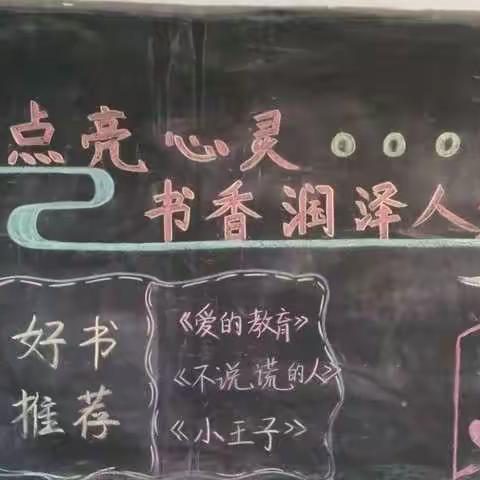 点亮心灵
书香润泽人
好书
推荐
《爱的教育》
《不说谎的人》
《小王子》